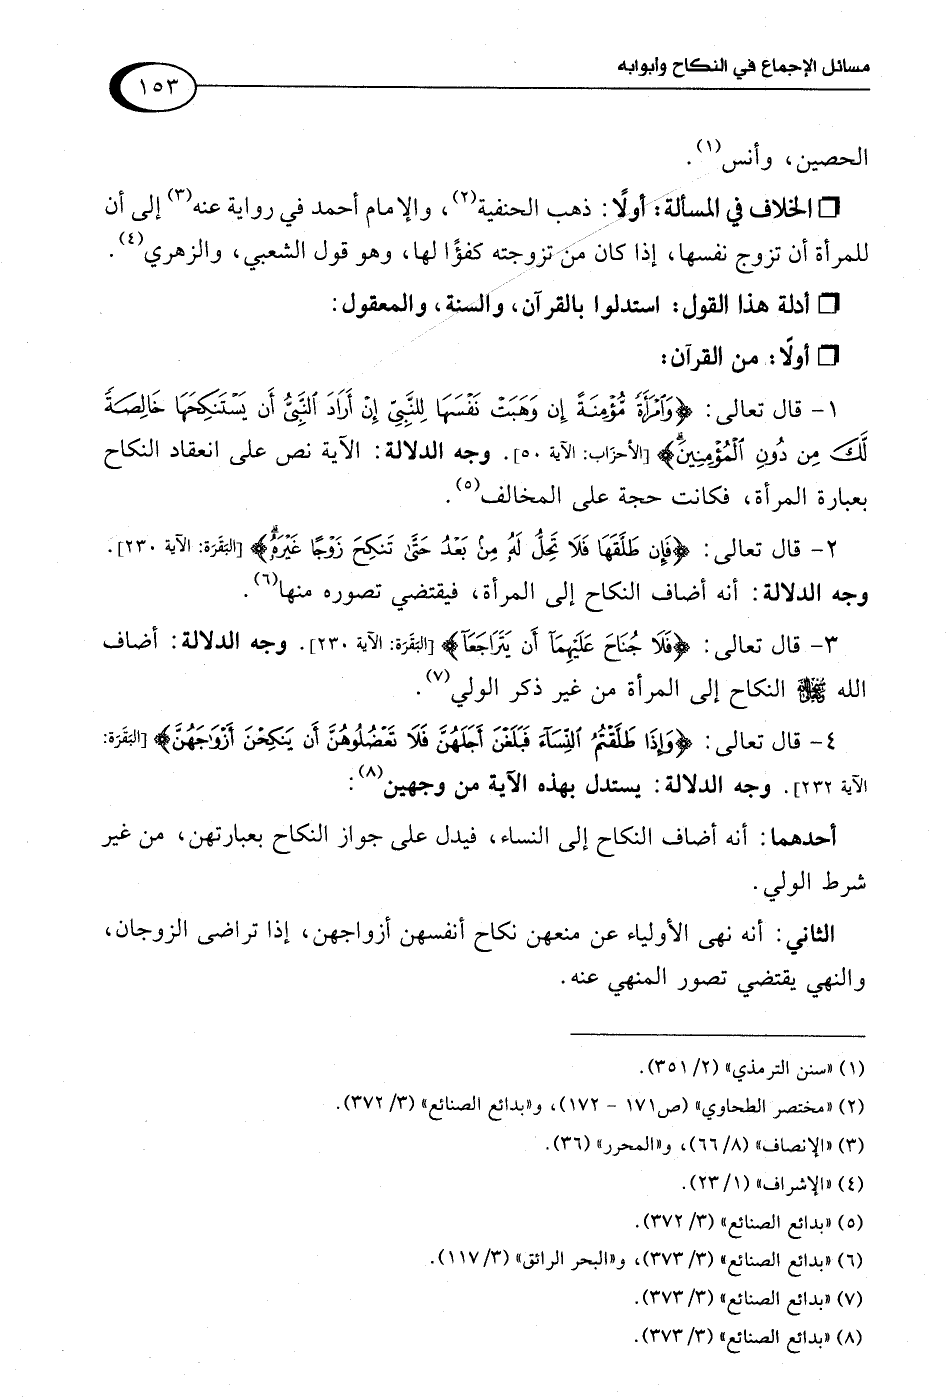 مسائل الإجماع في النكاح وأبوابه
١٥٣
الحصين، وأنس(١).
❒ الخلاف في المسألة: أولًا: ذهب الحنفية(٢)، والإمام أحمد في رواية عنه(٣) إلى أن
للمرأة أن تزوج نفسها، إذا كان من تزوجته كفؤًا لها، وهو قول الشعبي، والزهري(٤).
❒ أدلة هذا القول: استدلوا بالقرآن، والسنة، والمعقول:
❒ أولًا: من القرآن:
١- قال تعالى: ﴿وَٱمْرَأَةً مُّؤْمِنَةً إِن وَهَبَتْ نَفْسَهَا لِلنَّبِيِّ إِنْ أَرَادَ ٱلنَّبِيُّ أَن يَسْتَنكِحَهَا خَالِصَةً
لَّكَ مِن دُونِ ٱلْمُؤْمِنِينَۗ﴾ [الأحزَاب: الآية ٥٠]. وجه الدلالة: الآية نص على انعقاد النكاح
بعبارة المرأة، فكانت حجة على المخالف(٥).
٢- قال تعالى: ﴿فَإِن طَلَّقَهَا فَلَا تَحِلُّ لَهُۥ مِنۢ بَعْدُ حَتَّىٰ تَنكِحَ زَوْجًا غَيْرَهُۥۗ﴾ [البَقَرَة: الآية ٢٣٠].
وجه الدلالة: أنه أضاف النكاح إلى المرأة، فيقتضي تصوره منها(٦).
٣- قال تعالى: ﴿فَلَا جُنَاحَ عَلَيْهِمَآ أَن يَتَرَاجَعَآ﴾ [البَقَرَة: الآية ٢٣٠]. وجه الدلالة: أضاف
الله ﷻ النكاح إلى المرأة من غير ذكر الولي(٧).
٤- قال تعالى: ﴿وَإِذَا طَلَّقْتُمُ ٱلنِّسَآءَ فَبَلَغْنَ أَجَلَهُنَّ فَلَا تَعْضُلُوهُنَّ أَن يَنكِحْنَ أَزْوَٰجَهُنَّ﴾ [البَقَرَة:
الآية ٢٣٢]. وجه الدلالة: يستدل بهذه الآية من وجهين(٨):
أحدهما: أنه أضاف النكاح إلى النساء، فيدل على جواز النكاح بعبارتهن، من غير
شرط الولي.
الثاني: أنه نهى الأولياء عن منعهن نكاح أنفسهن أزواجهن، إذا تراضى الزوجان،
والنهي يقتضي تصور المنهي عنه.
(١) «سنن الترمذي» (٢/ ٣٥١).
(٢) «مختصر الطحاوي» (ص١٧١ - ١٧٢)، و«بدائع الصنائع» (٣/ ٣٧٢).
(٣) «الإنصاف» (٨/ ٦٦)، و«المحرر» (٣٦).
(٤) «الإشراف» (١/ ٢٣).
(٥) «بدائع الصنائع» (٣/ ٣٧٢).
(٦) «بدائع الصنائع» (٣/ ٣٧٣)، و«البحر الرائق» (٣/ ١١٧).
(٧) «بدائع الصنائع» (٣/ ٣٧٣).
(٨) «بدائع الصنائع» (٣/ ٣٧٣).